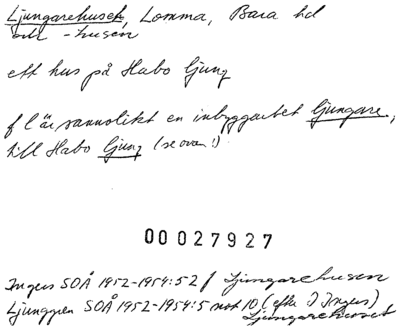 Ljungarehuset, Lomma, Bara hd
och -husen
ett hus på Habo ljung
f l är sannolikt en inbyggarbet ljungare,
till Habo ljung (se ovan!)
00027927
Ingers SOÅ 1952-1954:52 f Ljungarehusen
Ljunggren SOÅ 1952-1954:5 not 10 (efter I Ingers)
Ljungarehuset